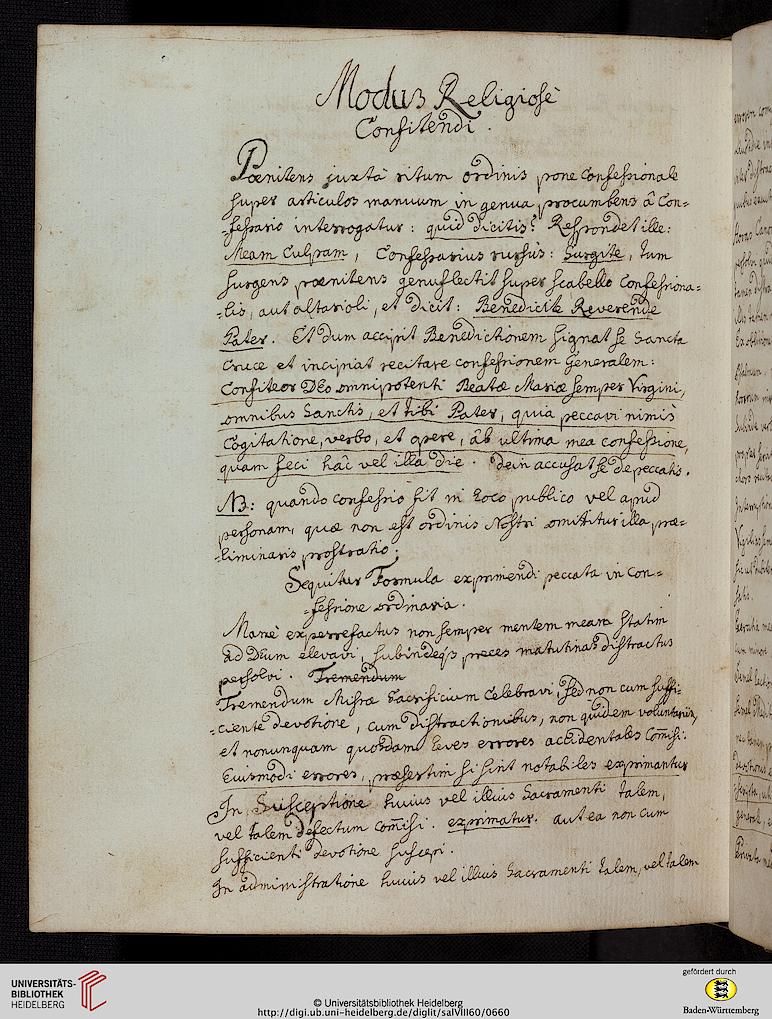 Modus Religiosè
Confitendi.
Pœnitens juxtà ritum ordinis prone Confessionale
super articulos manuum in genua procumbens â Con=
=fessario interrogatur: quid dicitis? Respondet ille:
Meam Culpam, Confessarius rursùs: Surgite, tum
surgens pœnitens genuflectit super scabello Confessiona=
=lis, aut altarioli, et dicit: Benedicite Reverende
Pater. Et dum accipit Benedictionem signat se Sancta
Cruce et incipiat recitare confessionem Generalem:
Confiteor DEo omnipotenti Beatæ Mariæ semper Virgini,
omnibus Sanctis, et tibi Pater, quia peccavi nimis
Cogitatione, verbo, et opere, âb ultima mea confessione,
quam feci hâc vel illa die. Dein accusat se de peccatis.
NB: quando confessio fit in Loco publico vel apud
personam, quæ non est ordinis Nostri omittitur illa præ=
=liminaris prostratio.
Sequitur Formula exprimendi peccata in Con=
=fessione ordinaria.
Manè experrefactus non semper mentem meam statin
ad DEum elevavi, subindeqs preces matutinas distractus
persolvi. Tremendum
Tremendum Missæ Sacrificium Celebravi, sed non cum suffi=
=ciente devotione, cum distractionibus, non quidem voluntariis,
et nonunquam quosdam leves errores accidentales Com̄isi.
Euismodi errores, præsertim si sint notabiles exprimantur
In Susceptione huius vel illius Sacramenti talem,
vel talem defectum com̄isi. exprimatur. aut ea non cum
sufficienti devotione suscepi.
In administratione huius vel illius Sacramenti talem, vel talem
UNIVERSITÄTS-
BIBLIOTHEK
HEIDELBERG
© Universitätsbibliothek Heidelberg
http://digi.ub.uni-heidelberg.de/diglit/salVIII60/0660
gefördert durch
Baden-Württemberg